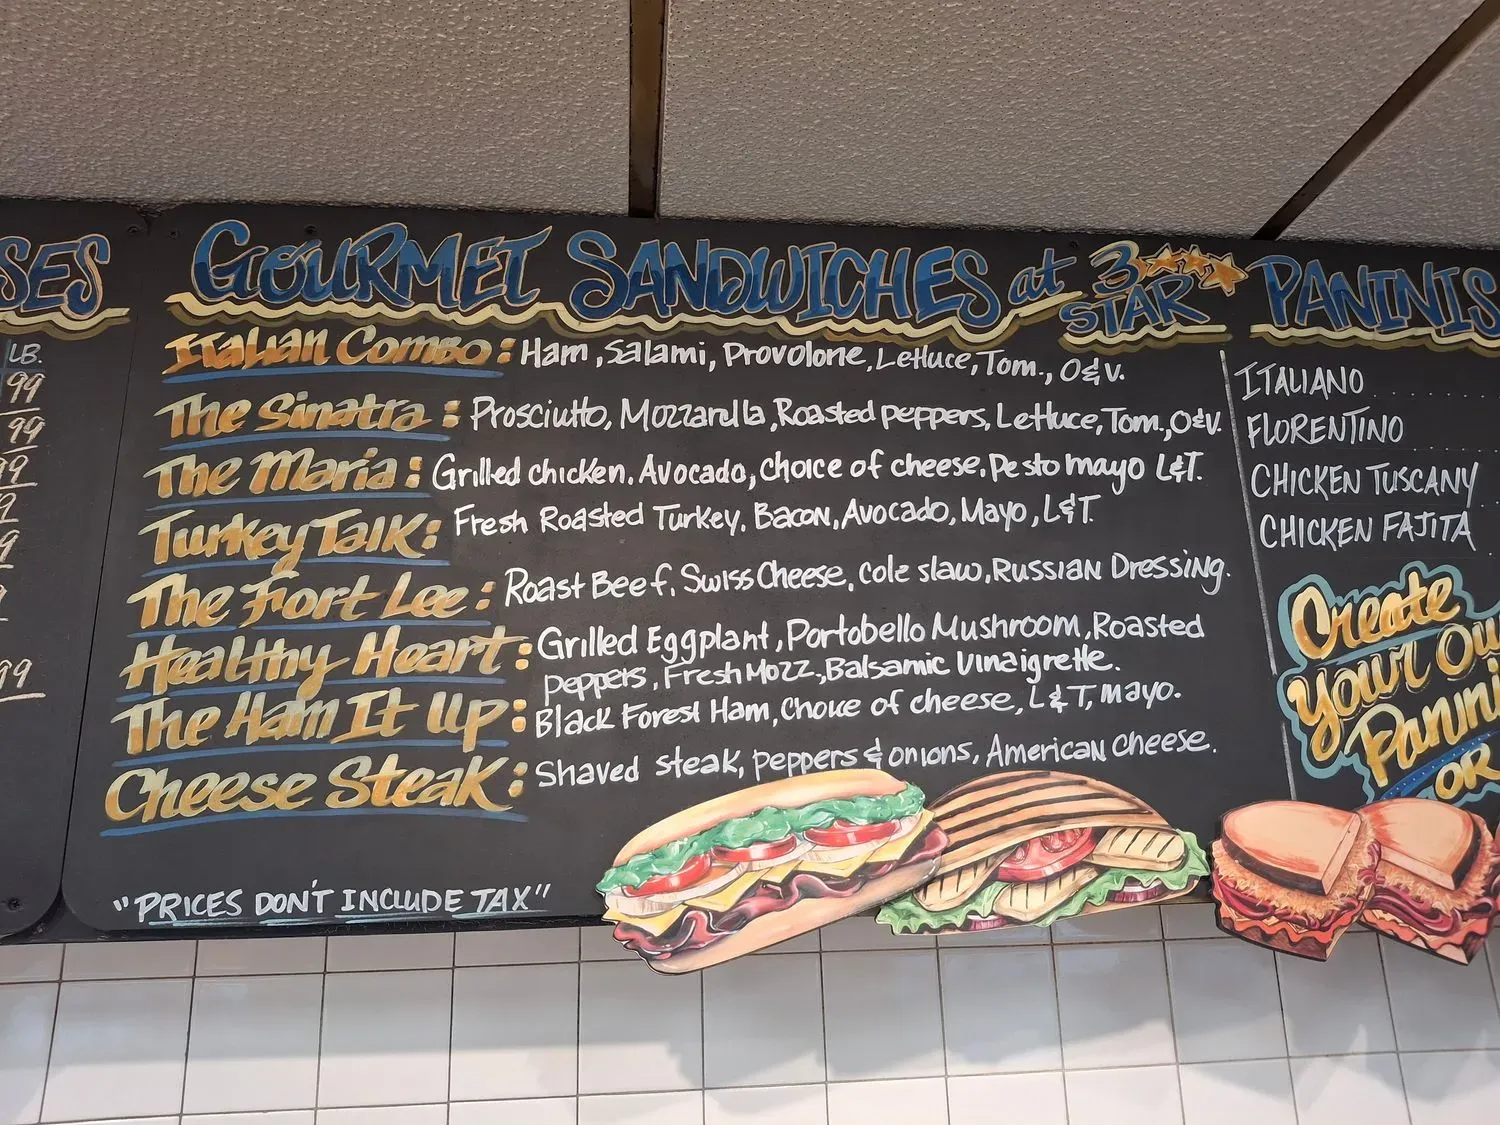 SES
LB.
99
99
99
GOURMET SANDWICHES at 3 STAR
Italian Combo: Ham, Salami, Provolone, Lettuce, Tom., O&V.
The Sinatra: Prosciutto, Mozzarella, Roasted peppers, Lettuce, Tom., O&V.
The Maria: Grilled chicken, Avocado, choice of cheese, Pesto mayo L&T.
Turkey Talk: Fresh Roasted Turkey, Bacon, Avocado, Mayo, L&T.
The Fort Lee: Roast Beef, Swiss Cheese, Cole slaw, Russian Dressing.
Healthy Heart: Grilled Eggplant, Portobello Mushroom, Roasted
peppers, Fresh Mozz., Balsamic Vinaigrette.
The Ham It Up: Black Forest Ham, Choice of cheese, L&T, mayo.
Cheese Steak: Shaved steak, peppers & onions, American Cheese.
"PRICES DON'T INCLUDE TAX"
PANINIS
ITALIANO
FLORENTINO
CHICKEN TUSCANY
CHICKEN FAJITA
Create
Your Ow
Panini
OR